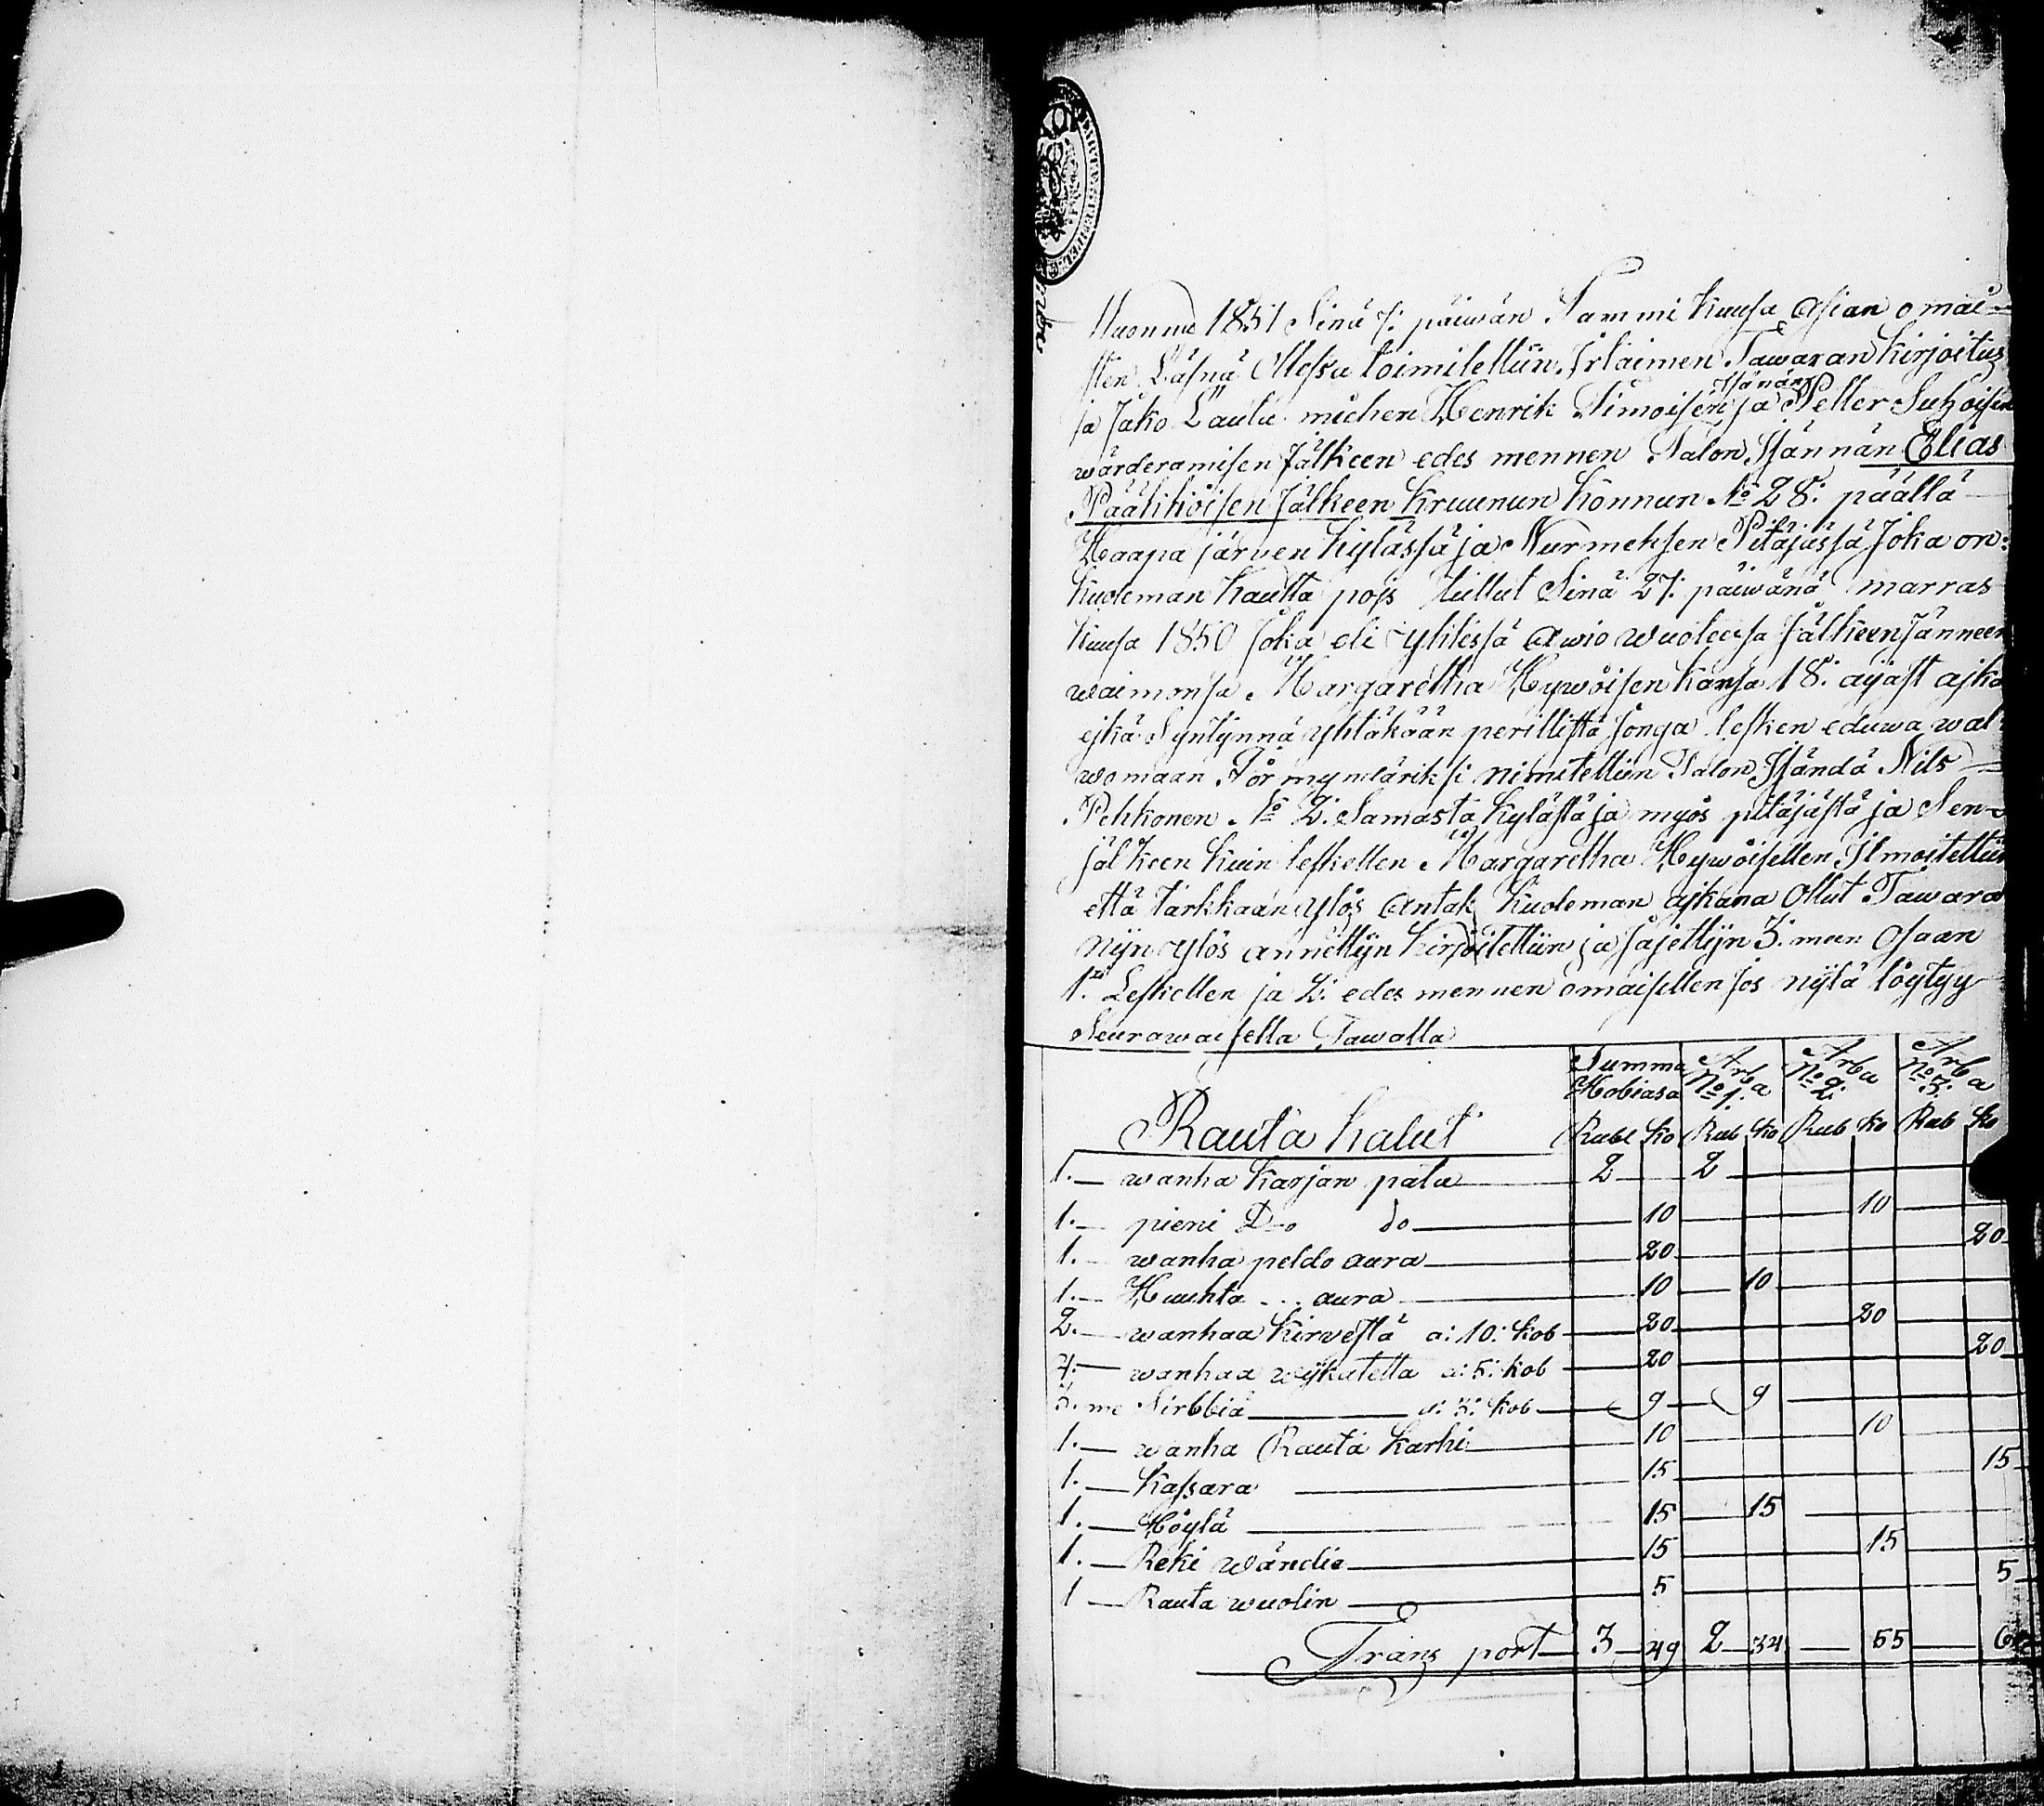 Wuonna 1851 Sinä 7: päiwän Tammi kuusa Asian omai-
sten Läsnä Ollessa toimitettiin Irtaimen Tawaran kirjoitus
Isänän
ja Jako Lautu miehen Henrik Timoisen ja Petter Suhoisen
wärderamisen Jälkeen edes mennen Talon Isännän Elias
Päälikköisen Jälkeen Kruunun Konnun No 28: päällä
Haapa järwen kylässä ja Nurmeksen Pitäjässä Joka on:
kuoleman kautta pojs tullut Sinä 27: päiwänä marras
kuusa 1850 Joka eli yhtessä Awio wuoteesa Jälkeen Jänneen
waimonsa Margaretha Hywöisen kansa 18: ajast ajka
ejkä Syntynnä yhtäkään perillistä Jonga lesken eduwa wal-
womaan Förmyndäriksi nimitettiin Talon Isändä Nils
Pehkonen No 2: Samasta kylästä ja myös pitäjästä ja Sen-
jälkeen kuin leskellen Margaretha Hywöisellen Ilmoitettiin
että tarkkaan ylös Antak kuoleman ajkana Ollut Tawara
nijn ylös annettijn kirjoitettiin ja Jajettijn 3: meen Osaan
1: Leskellen ja 2: edes mennen omaisellen Jos nijtä löytyy
Seurawaisella Tawalla
Summa Hobiasa Arba No 1: Arba No 2: Arba No 3:
Rauta kalut Rubl ko Rub ko Rub ko Rub ko
1. wanha karjan pata 2 2
1. pieni D-o do 10 10
1. wanha peldo aura 20 20
1. Huuhta ... aura 10 10
2. wanhaa kirwestä a: 10: kob 20 20
4. wanhaa wijkatetta a: 5: kob 20 20
3. me Sirbbiä a: 3: kob 9 9
1. wanha Rauta karhi 10 10
1. kassara 15 15
1. Höylä 15 15
1. Reki wändiä 15 15
1 Rauta wuolin 5 5
Trans port 3 49 2 34 55 60